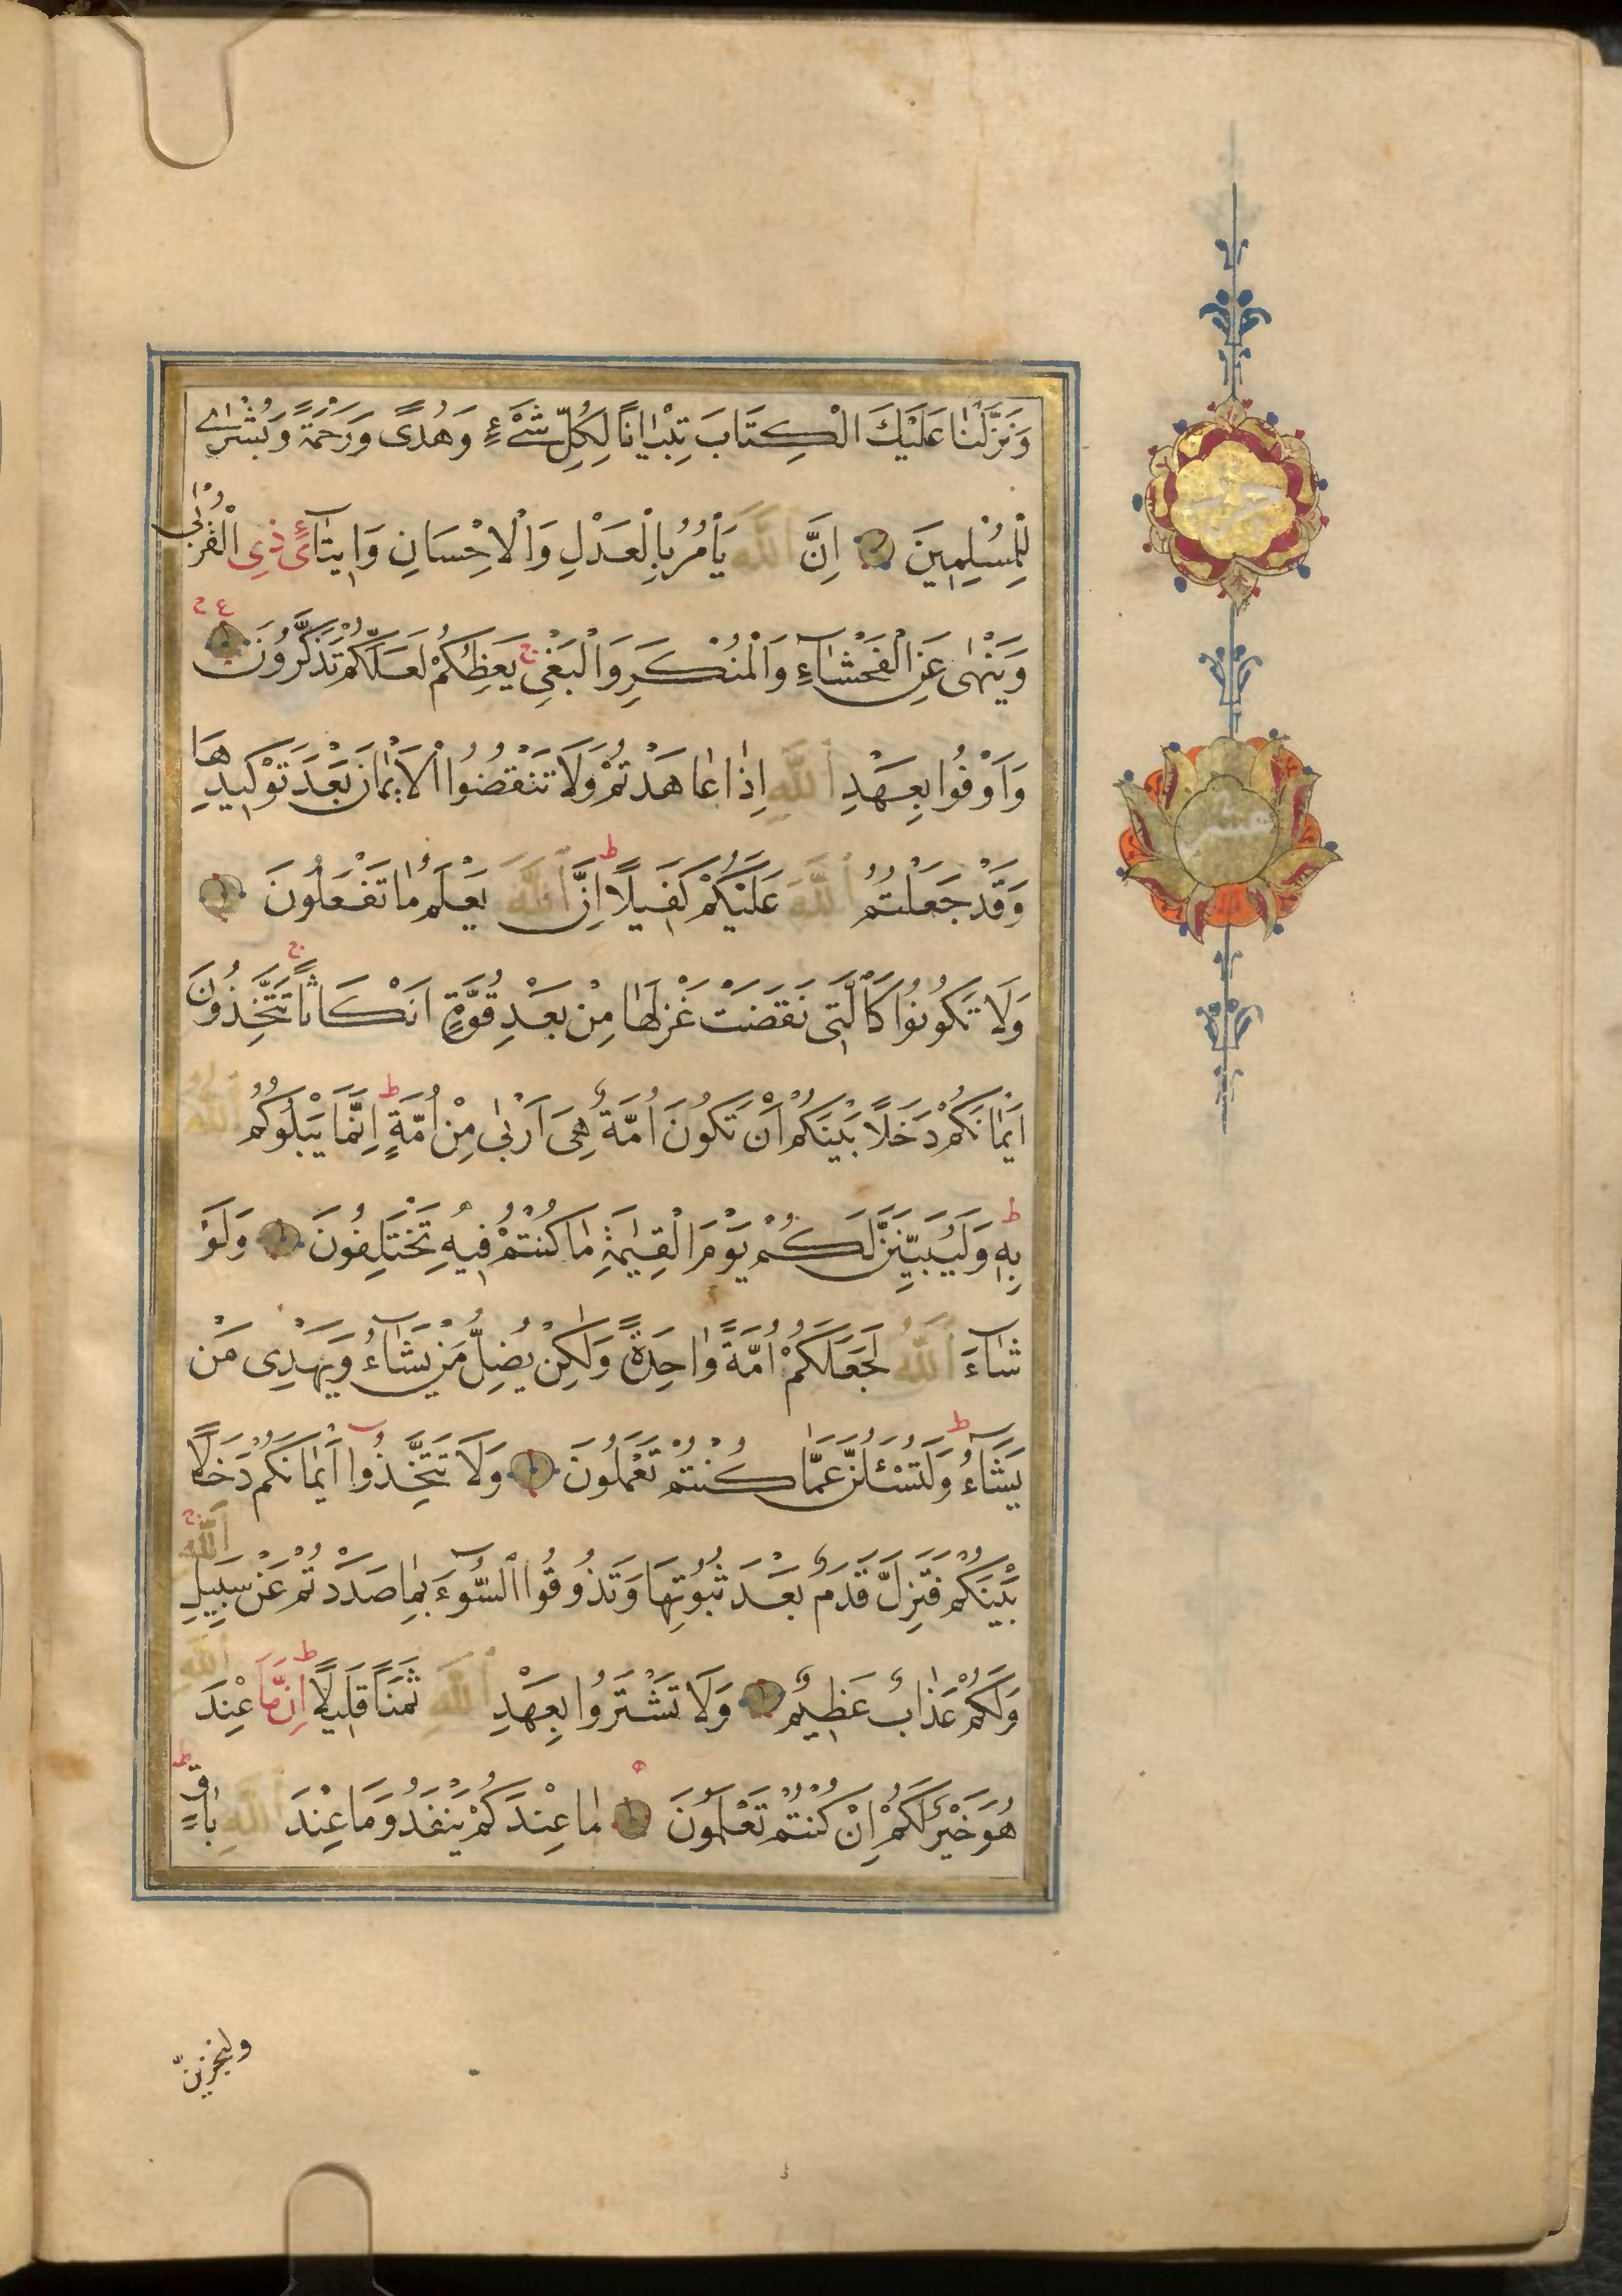 وَنَزَّلْنَا عَلَيْكَ الْكِتَابَ تِبْيَانًا لِكُلِّ شَيْءٍ وَهُدًى وَرَحْمَةً وَبُشْرٰى
لِلْمُسْلِمِينَ اِنَّ اللّٰهَ يَأْمُرُ بِالْعَدْلِ وَالْاِحْسَانِ وَاِيتَآئِ ذِي الْقُرْبٰى
وَيَنْهٰى عَنِ الْفَحْشَآءِ وَالْمُنْكَرِ وَالْبَغْيِ ج يَعِظُكُمْ لَعَلَّكُمْ تَذَكَّرُونَ ع ح
وَاَوْفُوا بِعَهْدِ اللّٰهِ اِذَا عَاهَدْتُمْ وَلَا تَنْقُضُوا الْاَيْمَانَ بَعْدَ تَوْكِيدِهَا
وَقَدْ جَعَلْتُمُ اللّٰهَ عَلَيْكُمْ كَفِيلًا ط اِنَّ اللّٰهَ يَعْلَمُ مَا تَفْعَلُونَ
وَلَا تَكُونُوا كَالَّتِي نَقَضَتْ غَزْلَهَا مِنْ بَعْدِ قُوَّةٍ اَنْكَاثًا ج تَتَّخِذُونَ
اَيْمَانَكُمْ دَخَلًا بَيْنَكُمْ اَنْ تَكُونَ اُمَّةٌ هِيَ اَرْبٰى مِنْ اُمَّةٍ ط اِنَّمَا يَبْلُوكُمُ اللّٰهُ
بِهِ ط وَلَيُبَيِّنَنَّ لَكُمْ يَوْمَ الْقِيٰمَةِ مَا كُنْتُمْ فِيهِ تَخْتَلِفُونَ وَلَوْ
شَآءَ اللّٰهُ لَجَعَلَكُمْ اُمَّةً وَاحِدَةً وَلٰكِنْ يُضِلُّ مَنْ يَشَآءُ وَيَهْدِي مَنْ
يَشَآءُ ط وَلَتُسْئَلُنَّ عَمَّا كُنْتُمْ تَعْمَلُونَ وَلَا تَتَّخِذُوا اَيْمَانَكُمْ دَخَلًا
بَيْنَكُمْ فَتَزِلَّ قَدَمٌ بَعْدَ ثُبُوتِهَا وَتَذُوقُوا السُّوٓءَ بِمَا صَدَدْتُمْ عَنْ سَبِيلِ اللّٰهِ ج
وَلَكُمْ عَذَابٌ عَظِيمٌ وَلَا تَشْتَرُوا بِعَهْدِ اللّٰهِ ثَمَنًا قَلِيلًا ط اِنَّمَا عِنْدَ اللّٰهِ
هُوَ خَيْرٌ لَكُمْ اِنْ كُنْتُمْ تَعْلَمُونَ مَا عِنْدَكُمْ يَنْفَدُ وَمَا عِنْدَ اللّٰهِ بَاقٍ ط
ولنجزينّ
حزب
عشر